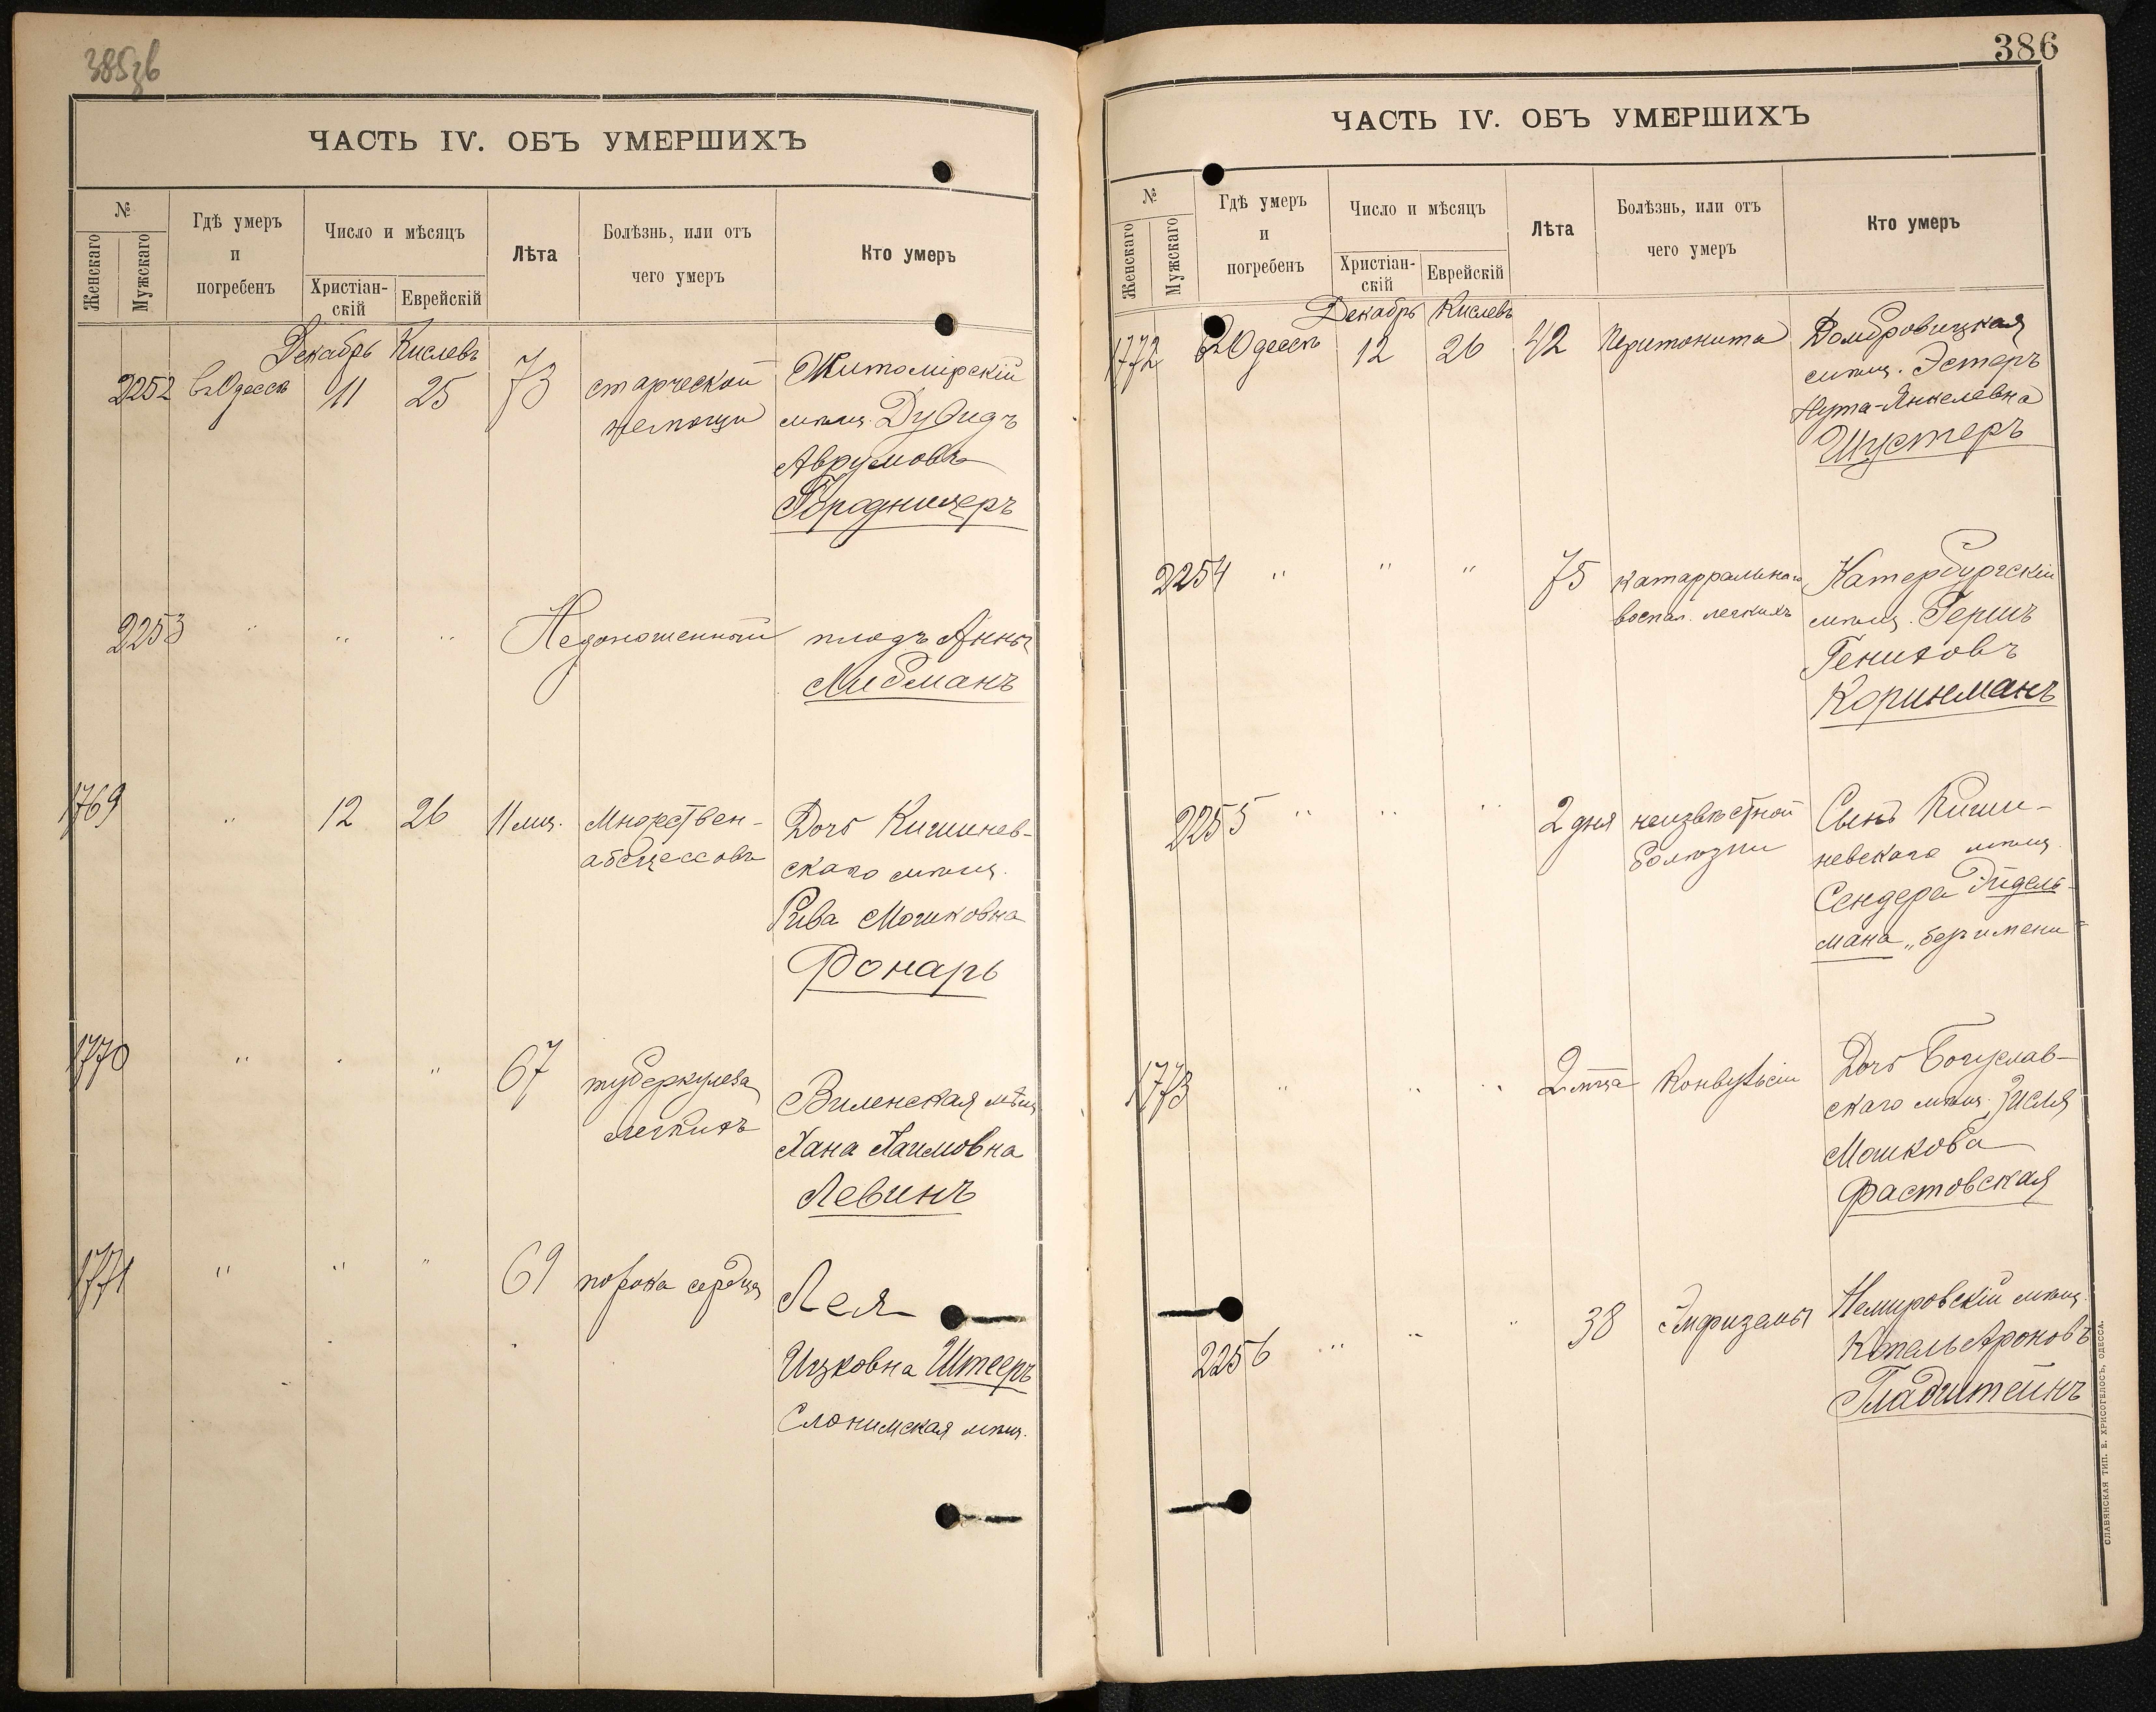 385зв
ЧАСТЬ IV. ОБЪ УМЕРШИХЪ
№
Женскаго
Мужскаго
Гдѣ умеръ
и
погребенъ
Число и мѣсяцъ
Христіан-
скій
Еврейскій
Лѣта
Болѣзнь, или отъ
чего умеръ
Кто умеръ
Декабрь Кислевъ
2252 въ Одессѣ 11 25 73 старческой Житомірскій
немощи мѣщ. Дувидъ
Аврумовъ
Городничеръ
2253 " " " Недоношенный плодъ Анны
Либманъ
1769 " 12 26 11 мѣс. Множествен- Дочь Кишинев-
абсцессовъ скаго мѣщ.
Рива Мошковна
Фонарь
1770 " " " 67 туберкулеза Виленская мѣщ.
легкихъ Хана Хаимовна
Левинъ
1771 " " " 69 порока сердца Лея
Ицковна Штееръ
Слонимская мѣщ.
386
ЧАСТЬ IV. ОБЪ УМЕРШИХЪ
№
Женскаго
Мужскаго
Гдѣ умеръ
и
погребенъ
Число и мѣсяцъ
Христіан-
скій
Еврейскій
Лѣта
Болѣзнь, или отъ
чего умеръ
Кто умеръ
Декабрь Кислевъ
1772 въ Одессѣ 12 26 42 Перитонита Домбровицкая
мѣщ. Эстеръ
Нута-Янкелевна
Шустеръ
2254 " " " 75 катарральнаго Катербургскій
воспал. легкихъ мѣщ. Гершъ
Гениховъ
Коринманъ
2255 " " " 2 дня неизвѣстной Сынъ Киши-
болѣзни невскаго мѣщ.
Сендера Эйдель-
мана „безъ имени“
1773 " " " 2 мѣца Конвульсіи Дочь Богуслав-
скаго мѣщ. Зисля
Мошкова
Фастовская
2256 " " " 38 Эмфиземы Немировскій мѣщ.
Копель Ароновъ
Гладштейнъ
СЛАВЯНСКАЯ ТИП. Е. ХРИСОГЕЛОСЪ, ОДЕССА.